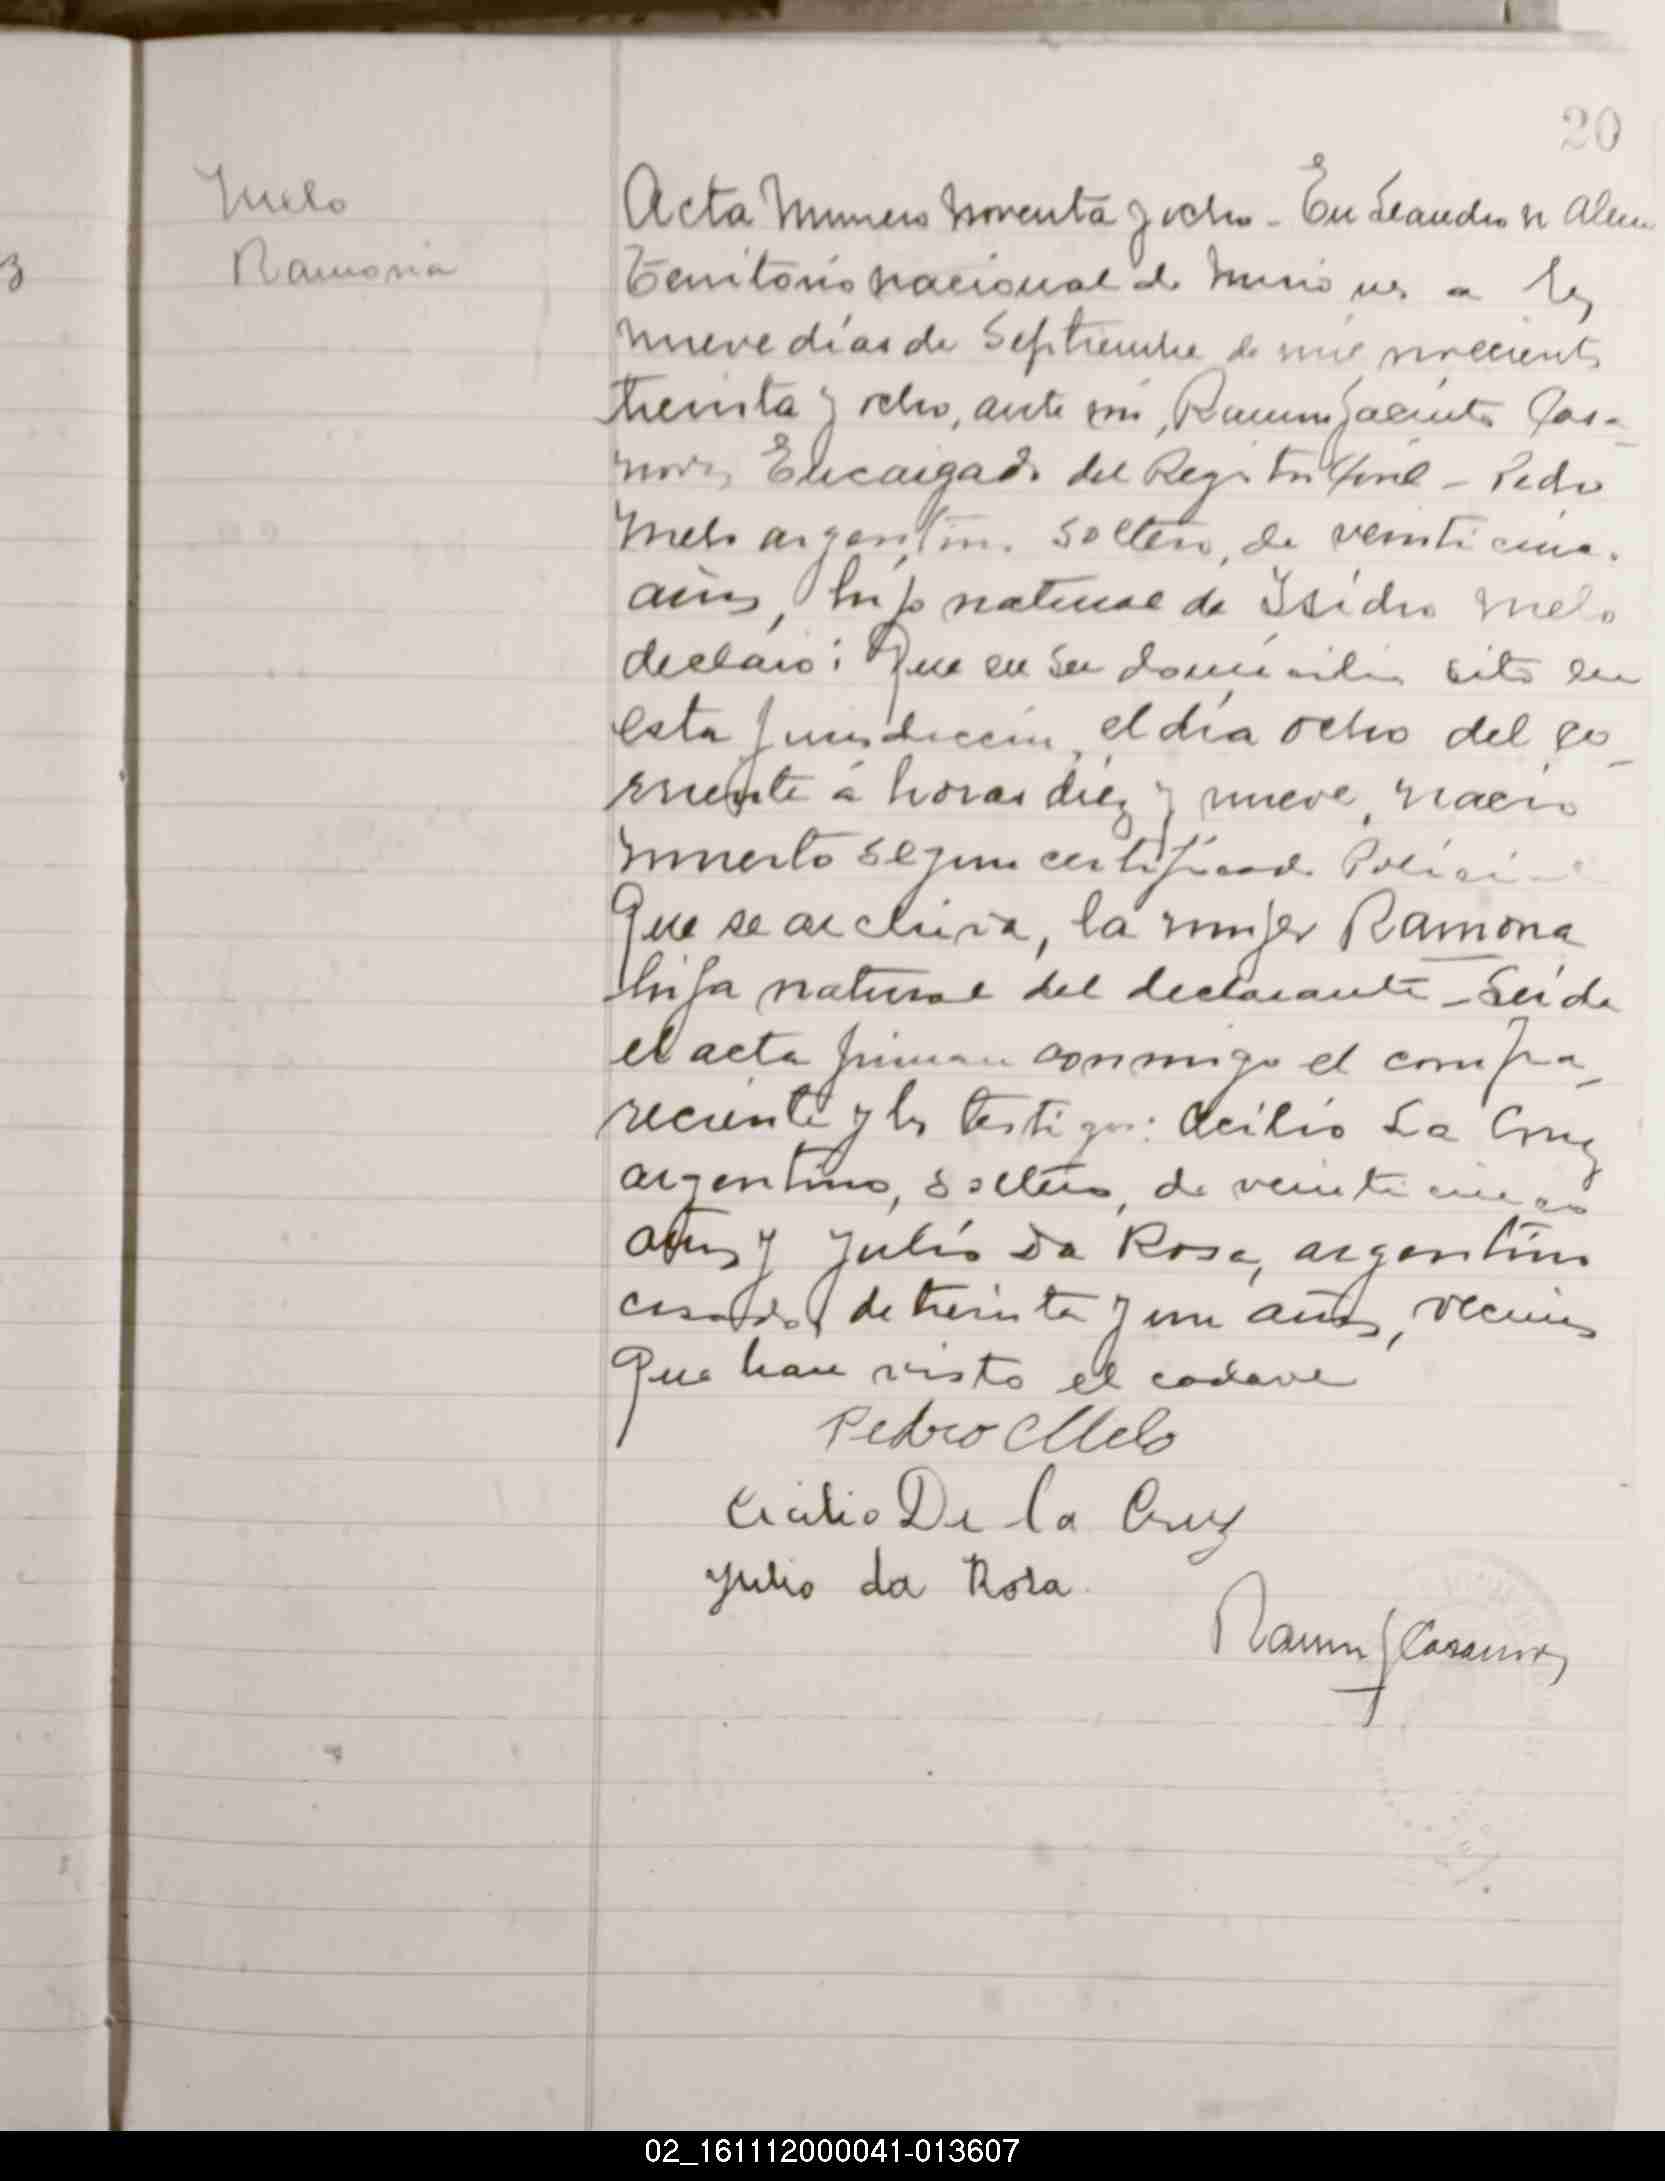 20
Melo
Ramona
3
Acta Numero Noventa y ocho - En Leandro N Alem
Territorio nacional de Misiones a los
nueve días de Septiembre de mil novecientos
treinta y ocho, ante mi, Ramon Jacinto Casa-
nova, Encargado del Registro Civil - Pedro
Melo argentino. soltero, de veinticinco
años, hijo natural de Isidro Melo
declaró: Que en su domicilio sito en
esta jurisdiccion, el día ocho del co-
rriente á horas diez y nueve, nacio
muerta segun certificado Policial
Que se archiva, la mujer Ramona
hija natural del declarante - Leida
el acta firman conmigo el compa-
reciente y los testigos: Cecilio La Cruz
argentino, soltero, de veinticinco
años y Julio Da Rosa, argentino
casado, de treinta y un años, vecinos
Que han visto el cadaver
Pedro Melo
Cecilio De la Cruz
Julio da Rosa.
Ramon J Casanova
02_161112000041-013607